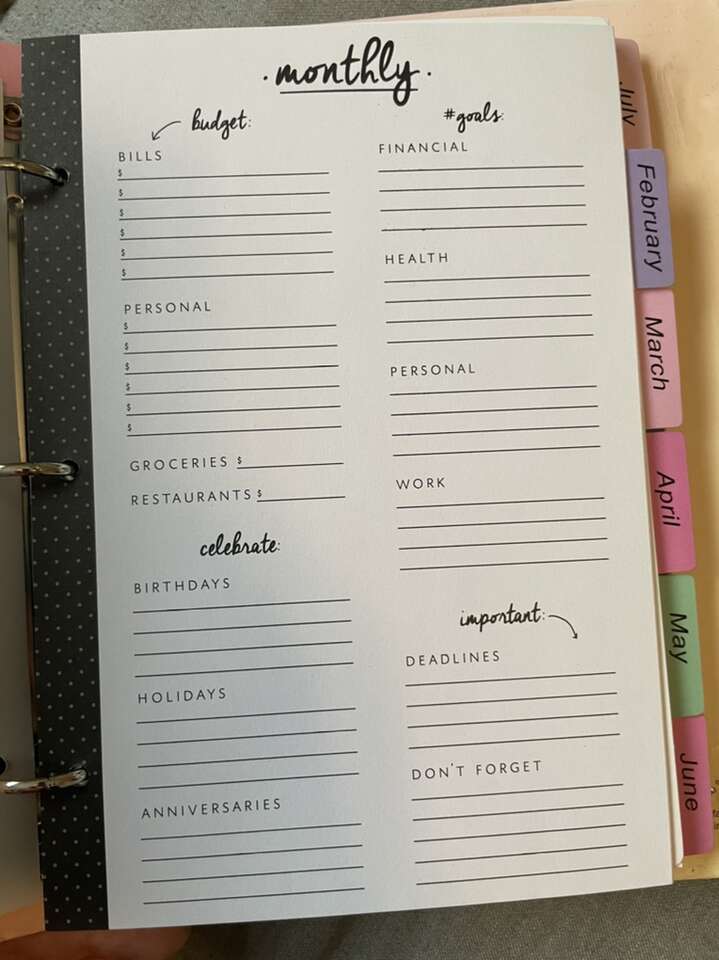 · monthly ·
budget:
BILLS
$
$
$
$
$
$
PERSONAL
$
$
$
$
$
$
GROCERIES $
RESTAURANTS $
celebrate:
BIRTHDAYS
HOLIDAYS
ANNIVERSARIES
#goals:
FINANCIAL
HEALTH
PERSONAL
WORK
important:
DEADLINES
DON'T FORGET
July
February
March
April
May
June